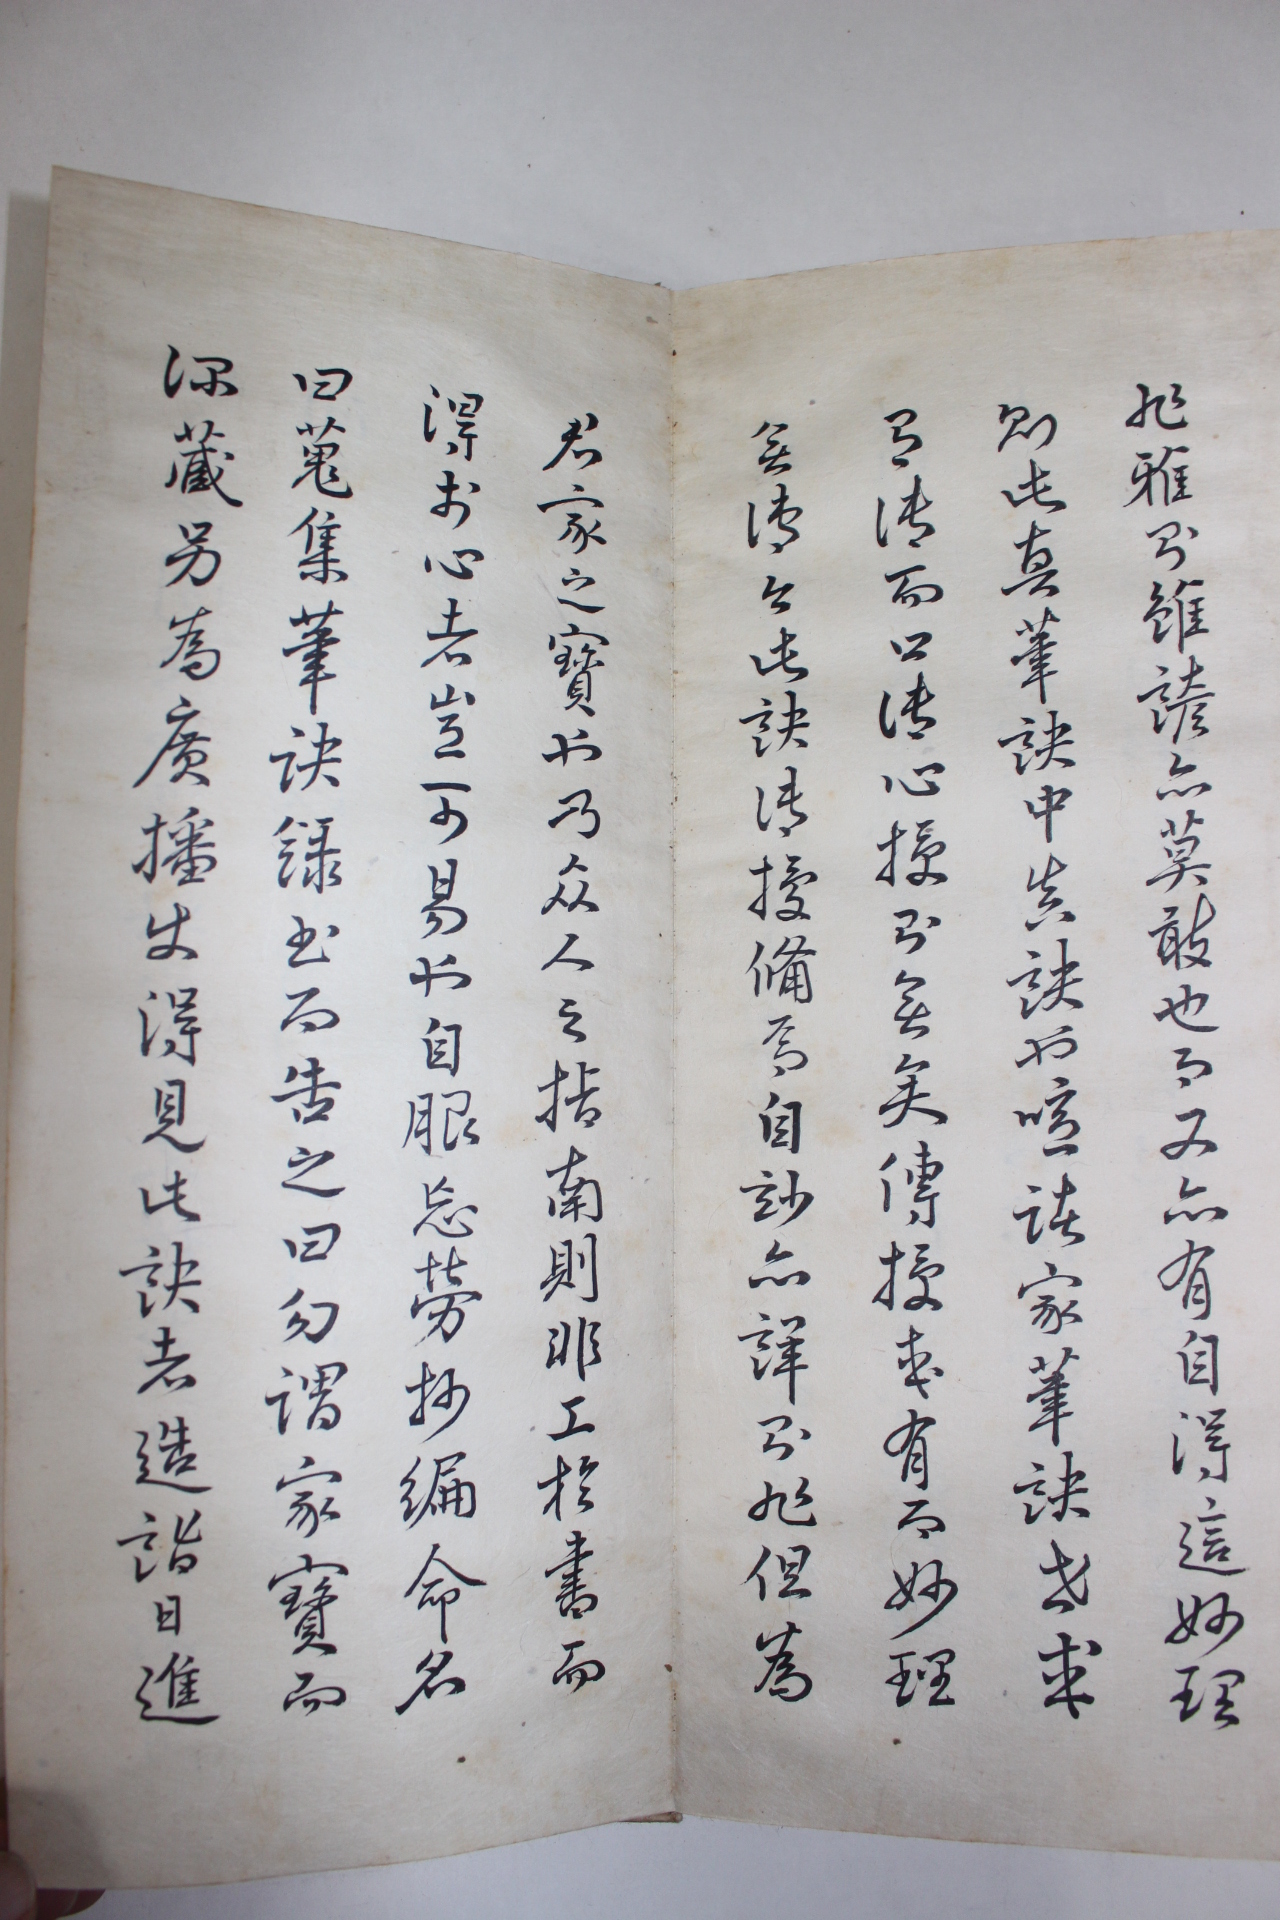 非雅則雖讀亦莫敢也而又亦有自得這妙理
則此真筆訣中真訣也噫諸家筆訣世或
有傳而口傳心授則無矣傳授或有而妙理
無傳今此訣傳授備焉自妙亦詳則非但為
君家之寶也乃眾人之指南則非工於書而
得於心者豈可易也自眼忘勞抄編命名
曰蒐集筆訣錄出而告之曰勿謂家寶而
深藏另為廣播使得見此訣者造詣日進